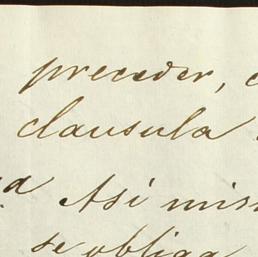 preceder,
clausula
Asi mis
se obliga